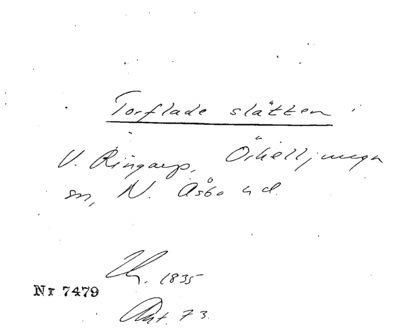 Torflade slätten
V. Ringarp, Örkelljunga
sn, N. Åsbo hd.
1835
Nr 7479
Akt 73.